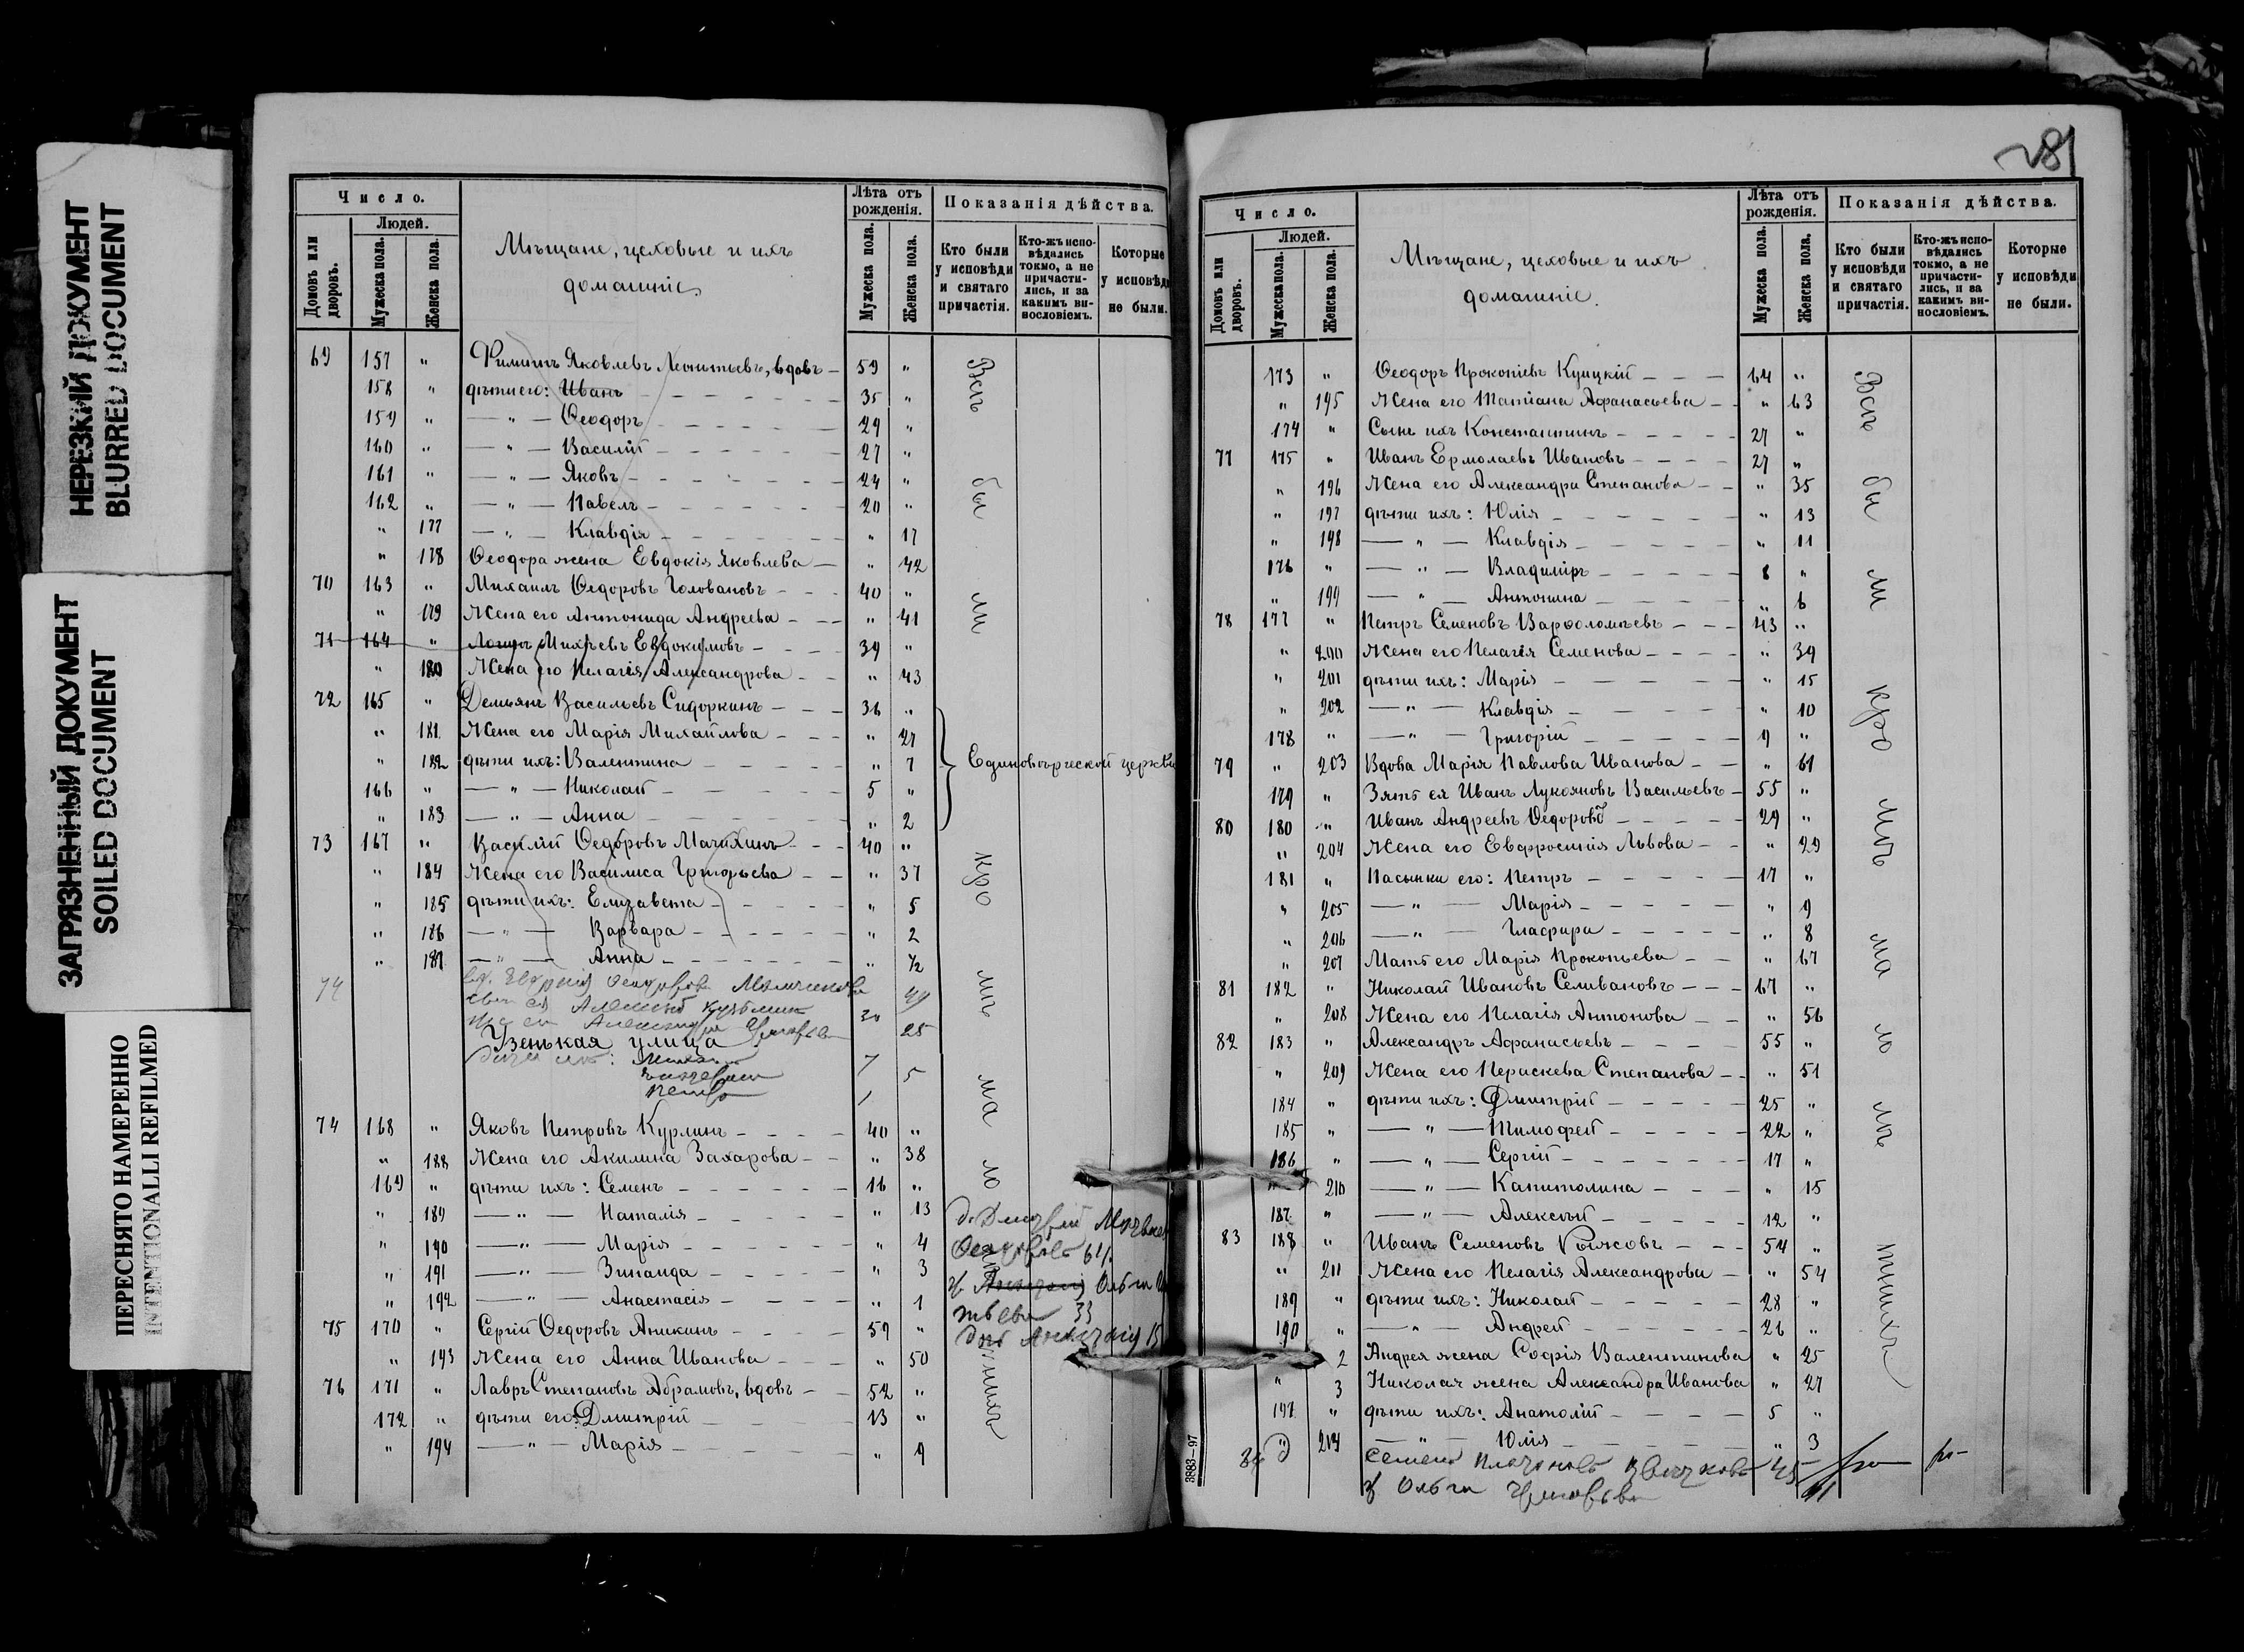 НЕРЕЗКИЙ ДОКУМЕНТ
BLURRED DOCUMENT
ЗАГРЯЗНЕННЫЙ ДОКУМЕНТ
SOILED DOCUMENT
ПЕРЕСНЯТО НАМЕРЕННО
INTENTIONALLI REFILMED
Число.
Людей.
Домовъ или дворовъ.
Мужеска пола.
Женска пола.
Мѣщане, цеховые и ихъ
домашніе.
Лѣта отъ рожденія.
Мужеска пола.
Женска пола.
Показанія дѣйства.
Кто были у исповѣди и святаго причастія.
Кто-жъ исповѣдались токмо, а не причастились, и за какимъ винословіемъ.
Которые у исповѣди не были.
69 157 " Филиппъ Яковлевъ Леонтьевъ, вдовъ — 59 "
158 " дѣти его: Иванъ 35 "
159 " — " — Ѳеодоръ 29 "
160 " — " — Василій 27 "
161 " — " — Яковъ 24 "
162 " — " — Павелъ 20 "
" 177 — " — Клавдія " 17
" 178 Ѳеодора жена Евдокія Яковлева — " 42
70 163 " Михаилъ Ѳедоровъ Головановъ 40 "
" 179 Жена его Антонида Андреева " 41
71 164 " Логинъ Михѣевъ Евдокимовъ 39 "
" 180 Жена его Пелагія Александрова " 43
72 165 " Демьянъ Васильевъ Сидоркинъ 36 "
" 181 Жена его Марія Михайлова " 27
" 182 дѣти ихъ: Валентина " 7
166 " — " — Николай 5 "
" 183 — " — Анна " 2
Единовѣрческой церкви
73 167 " Василій Ѳедоровъ Мачихинъ 40 "
" 184 Жена его Василиса Григорьева " 37
" 185 дѣти ихъ: Елизавета " 5
" 186 — " — Варвара " 2
" 187 — " — Анна " ½
74 49
Алексѣй Кузьмин 30
25
Узенькая улица
7
5
Петръ 1
74 168 " Яковъ Петровъ Курлинъ 40 "
" 188 Жена его Акилина Захарова " 38
169 " дѣти ихъ: Семенъ 16 "
" 189 — " — Наталія " 13
" 190 — " — Марія " 4
" 191 — " — Зинаида " 3
" 192 — " — Анастасія " 1
75 170 " Сергій Ѳедоровъ Аникинъ 59 "
" 193 Жена его Анна Иванова " 50
76 171 " Лавръ Степановъ Абрамовъ, вдовъ 52 "
172 " дѣти его: Дмитрій 13 "
" 194 — " — Марія " 9
Всѣ бы ли кро мѣ ма лѣтнихъ
61
Ольга
33
15
281
Число.
Людей.
Домовъ или дворовъ.
Мужеска пола.
Женска пола.
Мѣщане, цеховые и ихъ
домашніе.
Лѣта отъ рожденія.
Мужеска пола.
Женска пола.
Показанія дѣйства.
Кто были у исповѣди и святаго причастія.
Кто-жъ исповѣдались токмо, а не причастились, и за какимъ винословіемъ.
Которые у исповѣди не были.
173 " Ѳеодоръ Прокопіевъ Куицкій 64 "
" 195 Жена его Татіана Афанасьева " 63
174 " Сынъ ихъ Константинъ 27 "
77 175 " Иванъ Ермолаевъ Ивановъ 27 "
" 196 Жена его Александра Степанова " 35
" 197 дѣти ихъ: Юлія " 13
" 198 — " — Клавдія " 11
176 " — " — Владиміръ 8 "
" 199 — " — Антонина " 6
78 177 " Петръ Семеновъ Варѳоломѣевъ 43 "
" 200 Жена его Пелагія Семенова " 39
" 201 дѣти ихъ: Марія " 15
" 202 — " — Клавдія " 10
178 " — " — Григорій 9 "
79 " 203 Вдова Марія Павлова Иванова " 61
179 " Зять ея Иванъ Лукояновъ Васильевъ 55 "
80 180 " Иванъ Андреевъ Ѳедоровъ 29 "
" 204 Жена его Евфросинія Львова " 29
181 " Пасынки его: Петръ 17 "
" 205 — " — Марія " 9
" 206 — " — Глафира " 8
" 207 Мать его Марія Прокопьева " 67
81 182 " Николай Ивановъ Селивановъ 67 "
" 208 Жена его Пелагія Антонова " 56
82 183 " Александръ Афанасьевъ 55 "
" 209 Жена его Перискева Степанова " 51
184 " дѣти ихъ: Дмитрій 25 "
185 " — " — Тимофей 22 "
186 " — " — Сергій 17 "
" 210 — " — Капитолина " 15
187 " — " — Алексѣй 12 "
83 188 " Иванъ Семеновъ 54 "
" 211 Жена его Пелагія Александрова " 54
189 " дѣти ихъ: Николай 28 "
190 " — " — Андрей 26 "
2 Андрея жена Софія Валентинова " 25
" 3 Николая жена Александра Иванова " 27
191 " дѣти ихъ: Анатолій 5 "
" 214 — " — Юлія " 3
84 Семенъ Платоновъ 45
Ольга Григорьева 41
Всѣ бы ли кро мѣ ма ло лѣ тнихъ
3883—97